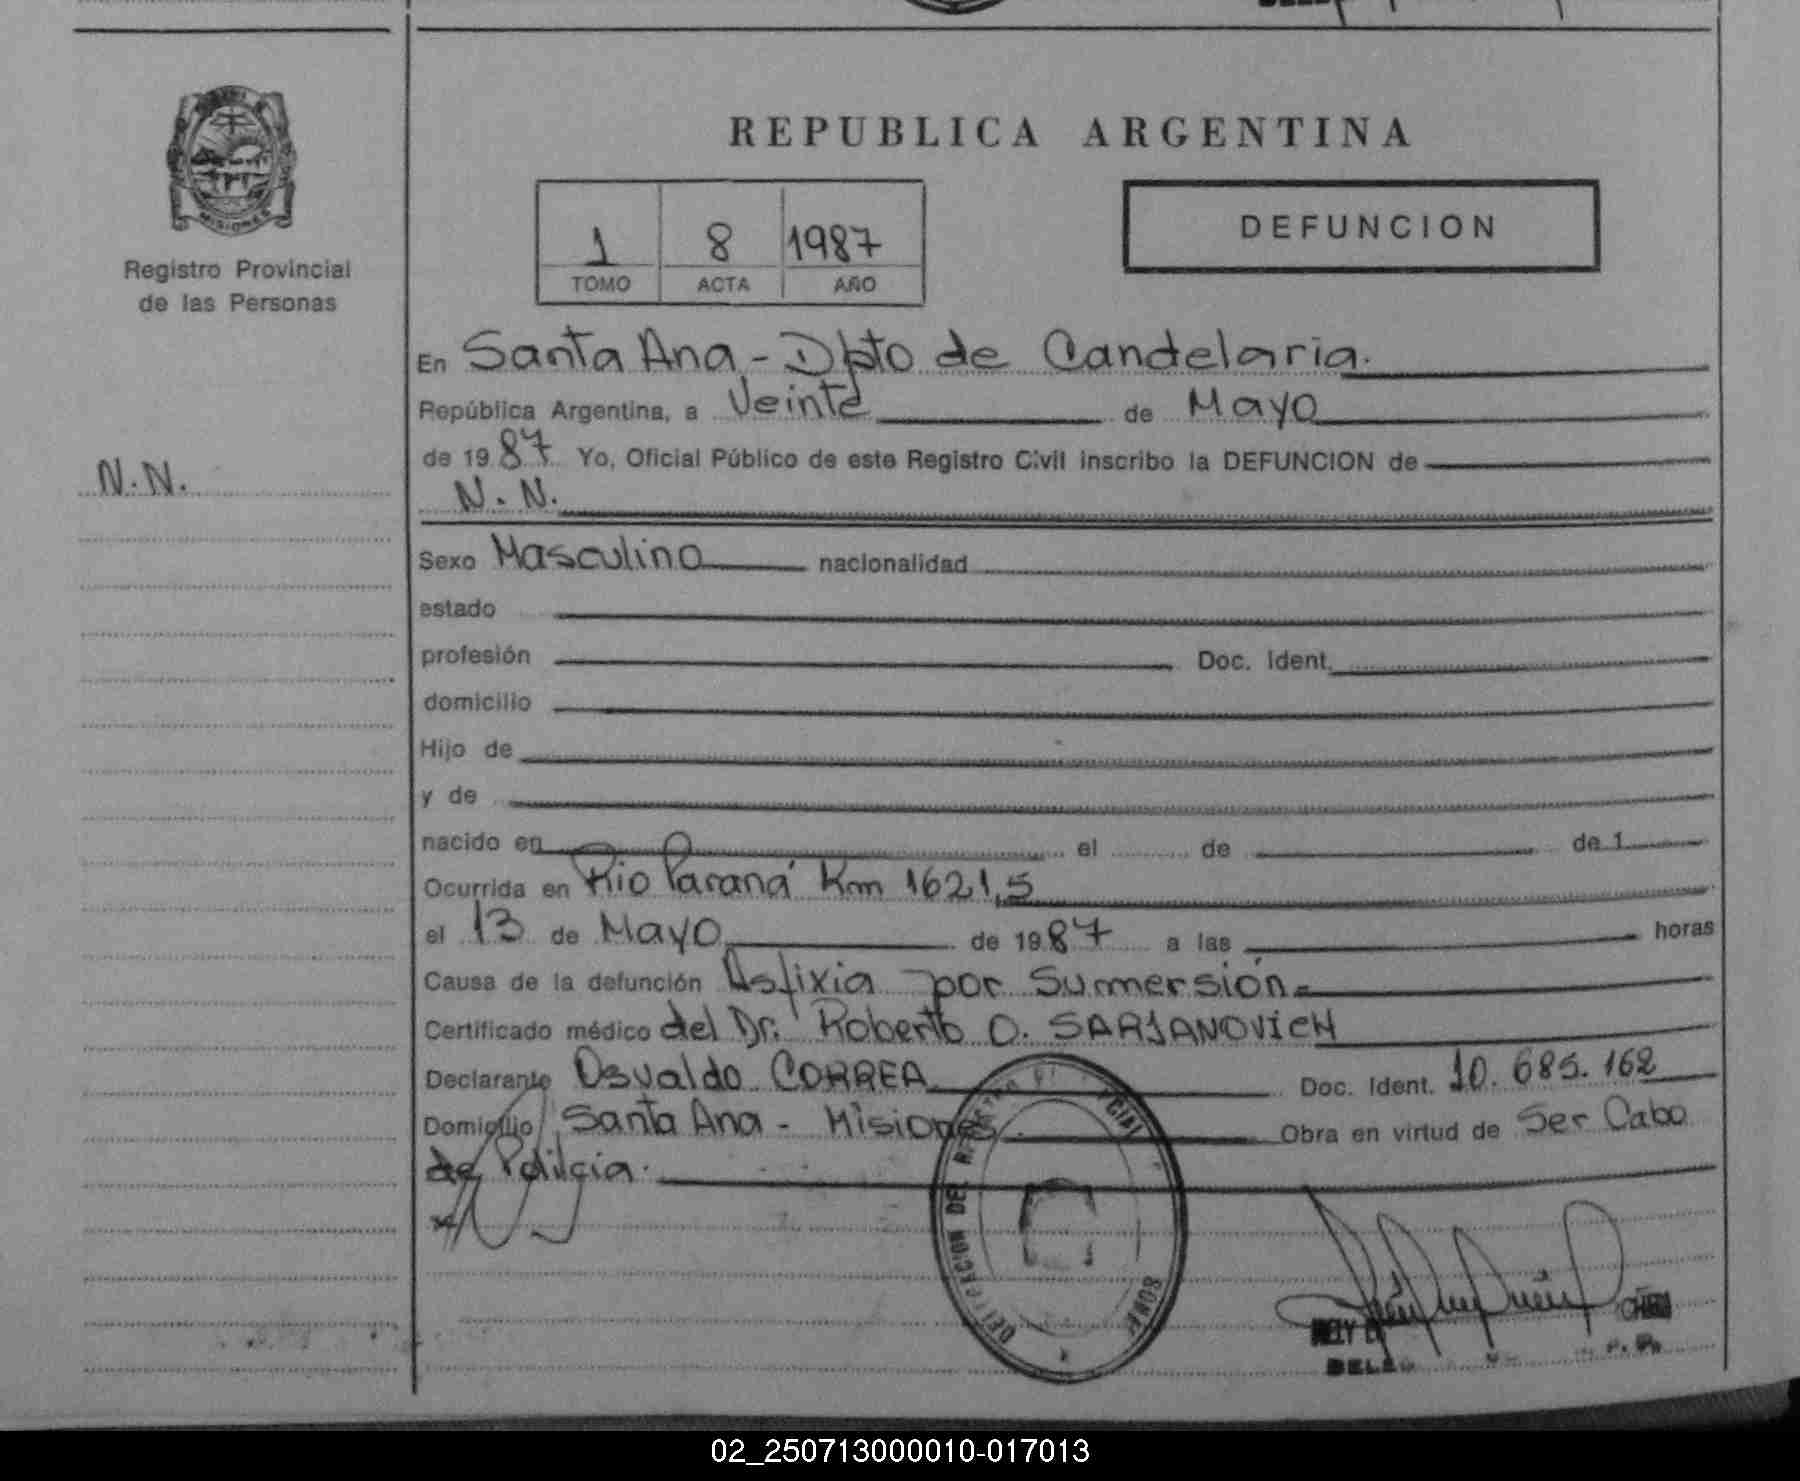 REPUBLICA ARGENTINA
MISIONES
Registro Provincial
de las Personas
1 8 1987
TOMO ACTA AÑO
DEFUNCION
N.N.
En Santa Ana - Dpto de Candelaria.
República Argentina, a Veinte de Mayo
de 1987 Yo, Oficial Público de este Registro Civil inscribo la DEFUNCION de
N. N.
Sexo Masculino nacionalidad
estado
profesión Doc. Ident.
domicilio
Hijo de
y de
nacido en el de de 1
Ocurrida en Rio Paraná Km 1621,5
el 13 de Mayo de 1987 a las horas
Causa de la defunción Asfixia por Summersión
Certificado médico del Dr. Roberto O. SARJANOVICH
Declarante Osvaldo CORREA Doc. Ident. 10.685.162
Domicilio Santa Ana - Misiones. Obra en virtud de Ser Cabo
de Policia.
DEL
02_250713000010-017013